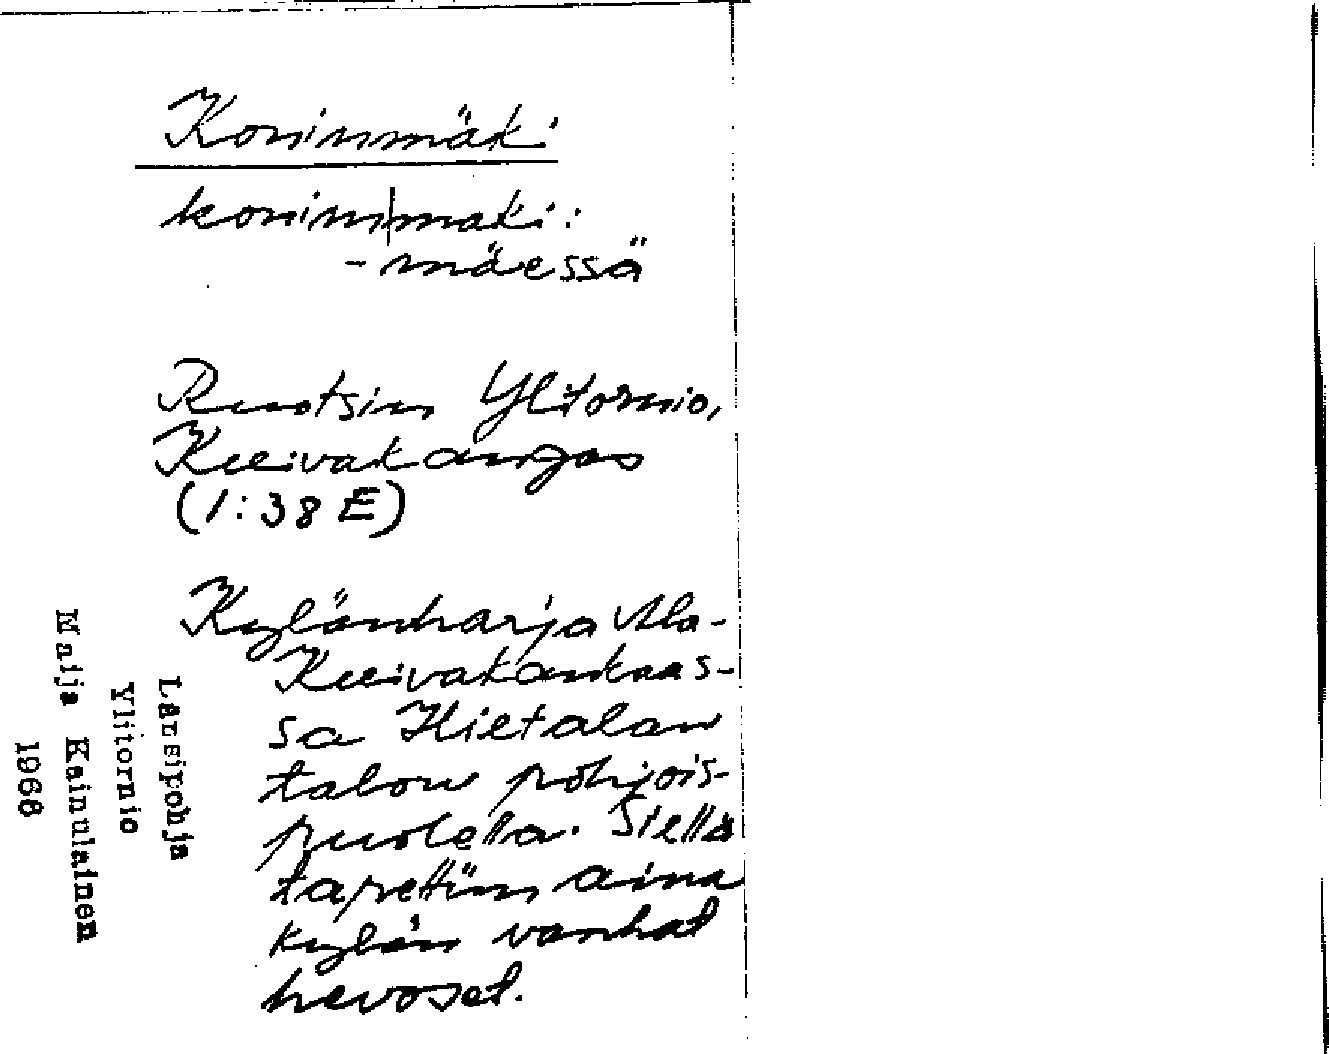 Koninmäki
konin|mäki:
-mäessä
Ruotsin Ylitornio,
Kuivakangas
(1:38 E)
Kylänharja Ala-
Kuivakankaas-
sa Hietalan
talon pohjois-
puolella. Siellä
tapettiin aina
kylän vanhat
hevoset.
Länsipohja
Ylitornio
Maija Kainulainen
1968